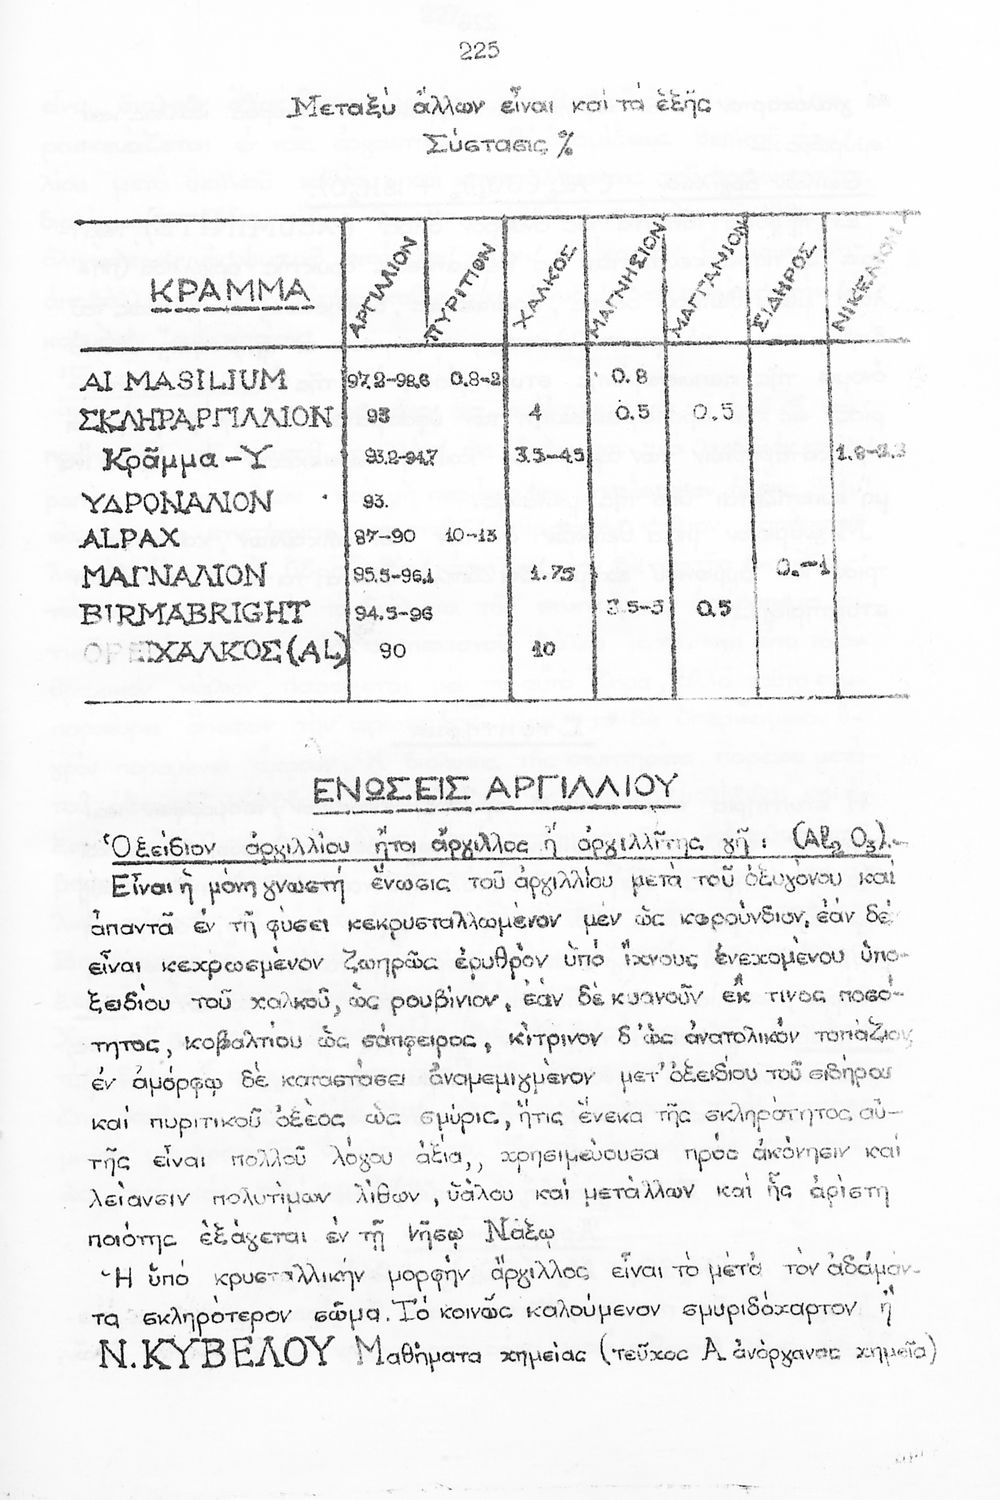 225
Μεταξύ ἄλλων εἶναι καί τά ἑξῆς
Σύστασις %
ΚΡΑΜΜΑ ΑΡΓΙΛΛΙΟΝ ΠΥΡΙΤΙΟΝ ΧΑΛΚΟΣ ΜΑΓΝΗΣΙΟΝ ΜΑΓΓΑΝΙΟΝ ΣΙΔΗΡΟΣ ΝΙΚΕΛΙΟΝ
AL MASILIUM 97.2-98.6 0.8-2 0.8
ΣΚΛΗΡΑΡΓΙΛΛΙΟΝ 93 4 0.5 0.5
Κρᾶμμα-Υ 93.2-94.7 3.5-4.5 1.8-2.3
ΥΔΡΟΝΑΛΙΟΝ 93.
ALPAX 87-90 10-13
ΜΑΓΝΑΛΙΟΝ 95.5-96.1 1.75 0.-1
BIRMABRIGHT 94.5-96 3.5-5 0.5
ΟΡΕΙΧΑΛΚΟΣ (AL) 90 10
ΕΝΩΣΕΙΣ ΑΡΓΙΛΛΙΟΥ
Ὀξείδιον ἀργιλλίου ἤτοι ἄργιλλος ἤ ἀργιλλῖτης γῆ: (Al₂O₃).-
Εἶναι ἡ μόνη γνωστή ἕνωσις τοῦ ἀργιλλίου μετά τοῦ ὀξυγόνου καί
ἀπαντᾶ ἐν τῆ φύσει κεκρυσταλλωμένον μέν ὡς κορούνδιον, ἐάν δέ
εἶναι κεχρωσμένον ζωηρῶς ἐρυθρόν ὑπό ἴχνους ἐνεχομένου ὑπο-
ξειδίου τοῦ χαλκοῦ, ὡς ρουβίνιον, ἐάν δέ κυανοῦν ἔκ τινος ποσό-
τητος, κοβαλτίου ὡς σάπφειρος, κίτρινον δ' ὡς ἀνατολικόν τοπάζιον
ἐν ἀμόρφῳ δέ καταστάσει ἀναμεμιγμένον μετ' ὀξειδίου τοῦ σιδήρου
καί πυριτικοῦ ὀξέος ὡς σμύρις, ἥτις ἕνεκα τῆς σκληρότητος αὐ-
τῆς εἶναι πολλοῦ λόγου ἀξία,, χρησιμεύουσα πρός ἀκόνησιν καί
λείανσιν πολυτίμων λίθων, ὑάλου καί μετάλλων καί ἧς ἀρίστη
ποιότης ἐξάγεται ἐν τῇ νήσῳ Νάξῳ
Ἡ ὑπό κρυσταλλικήν μορφήν ἄργιλλος εἶναι τό μετά τόν ἀδάμαν-
τα σκληρότερον σῶμα. Τό κοινῶς καλούμενον σμυριδόχαρτον ἤ
Ν. ΚΥΒΕΛΟΥ Μαθήματα χημείας (τεῦχος Α ἀνόργανος χημεῖα)